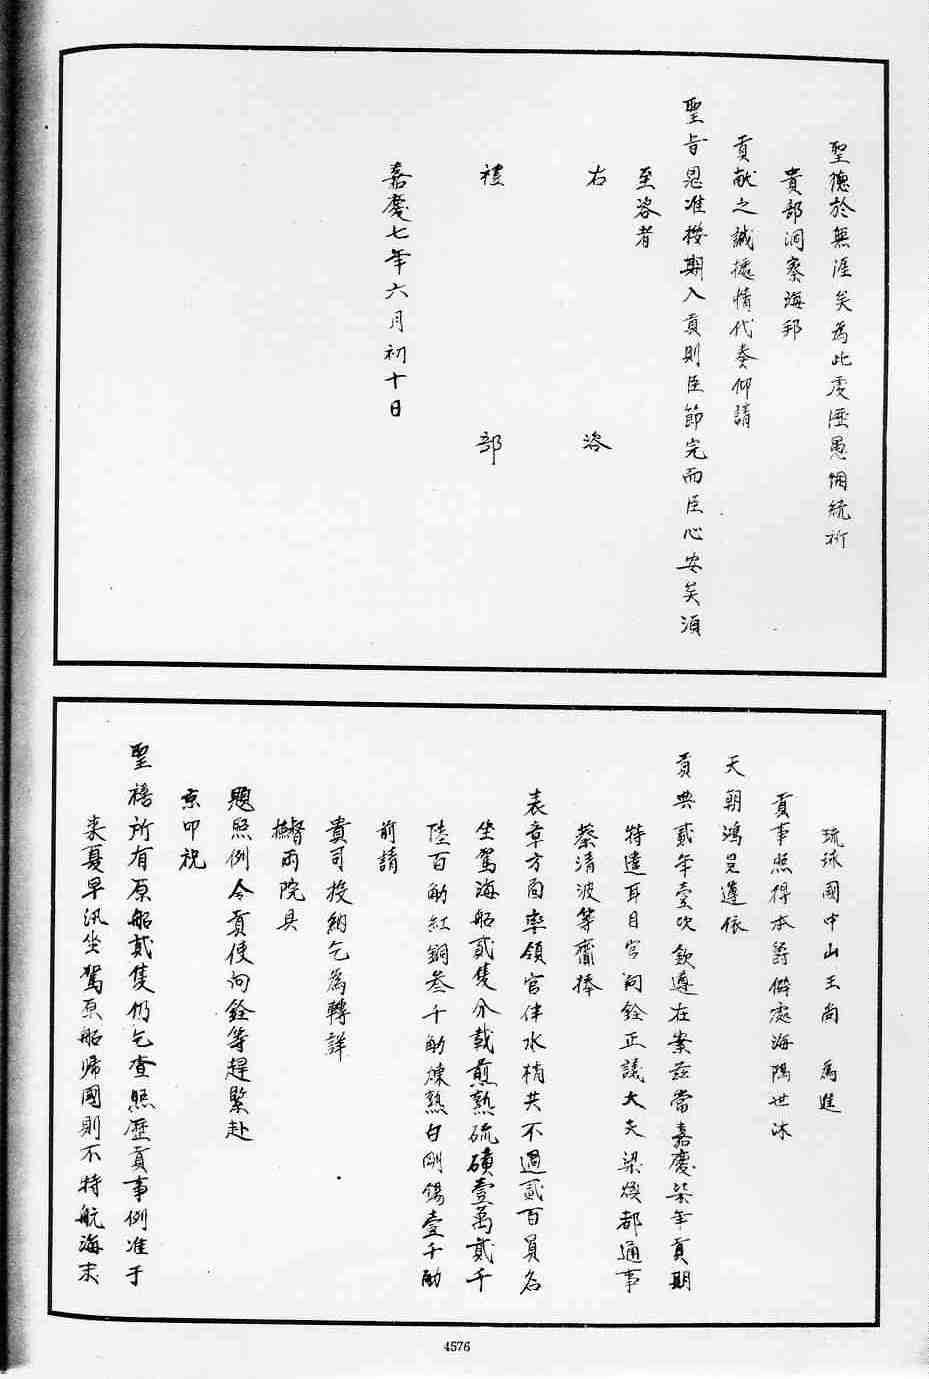 聖德於無涯矣為此虔瀝愚悃統祈
貴部洞察海邦
貢献之誠據情代奏仰請
聖旨恩准按期入貢則臣節完而臣心安矣須
至咨者
右 咨
禮 部
嘉慶七年六月初十日
琉球國中山王尚 為進
貢事照得本爵僻處海隅世沐
天朝鴻恩遵依
貢典貳年壹次欽遵在案茲當嘉慶柒年貢期
特遣耳目官向銓正議大夫梁煥都通事
蔡清波等齎捧
表章方物率領官伴水梢共不過貳百員名
坐駕海船貳隻分載煎熟硫磺壹萬貳千
陸百觔紅銅叁千觔煉熟白剛錫壹千觔
前請
貴司投納乞為轉詳
督撫兩院具
題照例令貢使向銓等趕緊赴
京叩祝
聖禧所有原船貳隻仍乞查照歷貢事例准于
来夏早汛坐駕原船歸國則不特航海末
4576